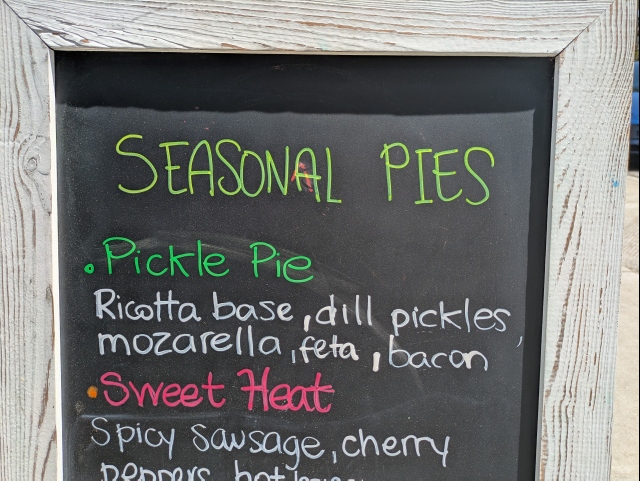 SEASONAL PIES
. Pickle Pie
Ricotta base, dill pickles,
mozarella, feta, bacon
. Sweet Heat
Spicy Sausage, cherry
peppers, hot